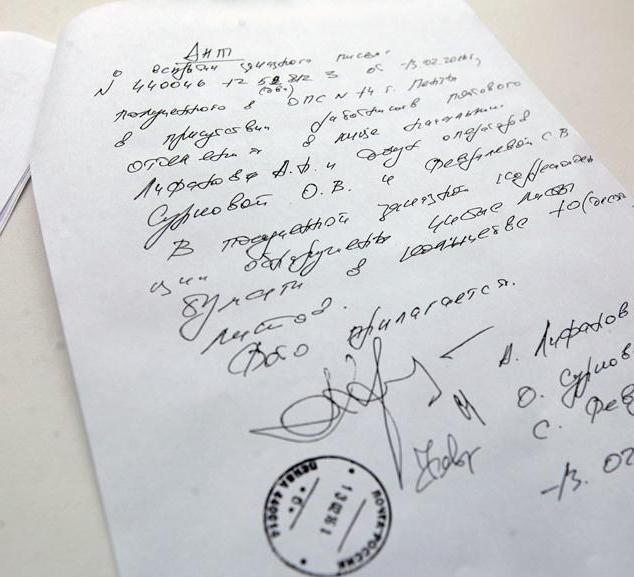 Акт
вскрытия заказного письма
N 440046 72 58 812 3 от 13.02.2016г,
полученного в ОПС N 14 г. Пензы
в присутствии работников почтового
отделения в лице начальника
Лифанова А. и двух операторов
Сурковой О.В. и Февралевой С.В.
В полученной заказной корреспонден
ции обнаружены чистые листы
бумаги в количестве 10 (десять
листов.
Фото прилагается.
А. Лифанов
О. Сурков
С. Фев
13. 02
ПОЧТА РОССИИ
ПЕНЗА 440014